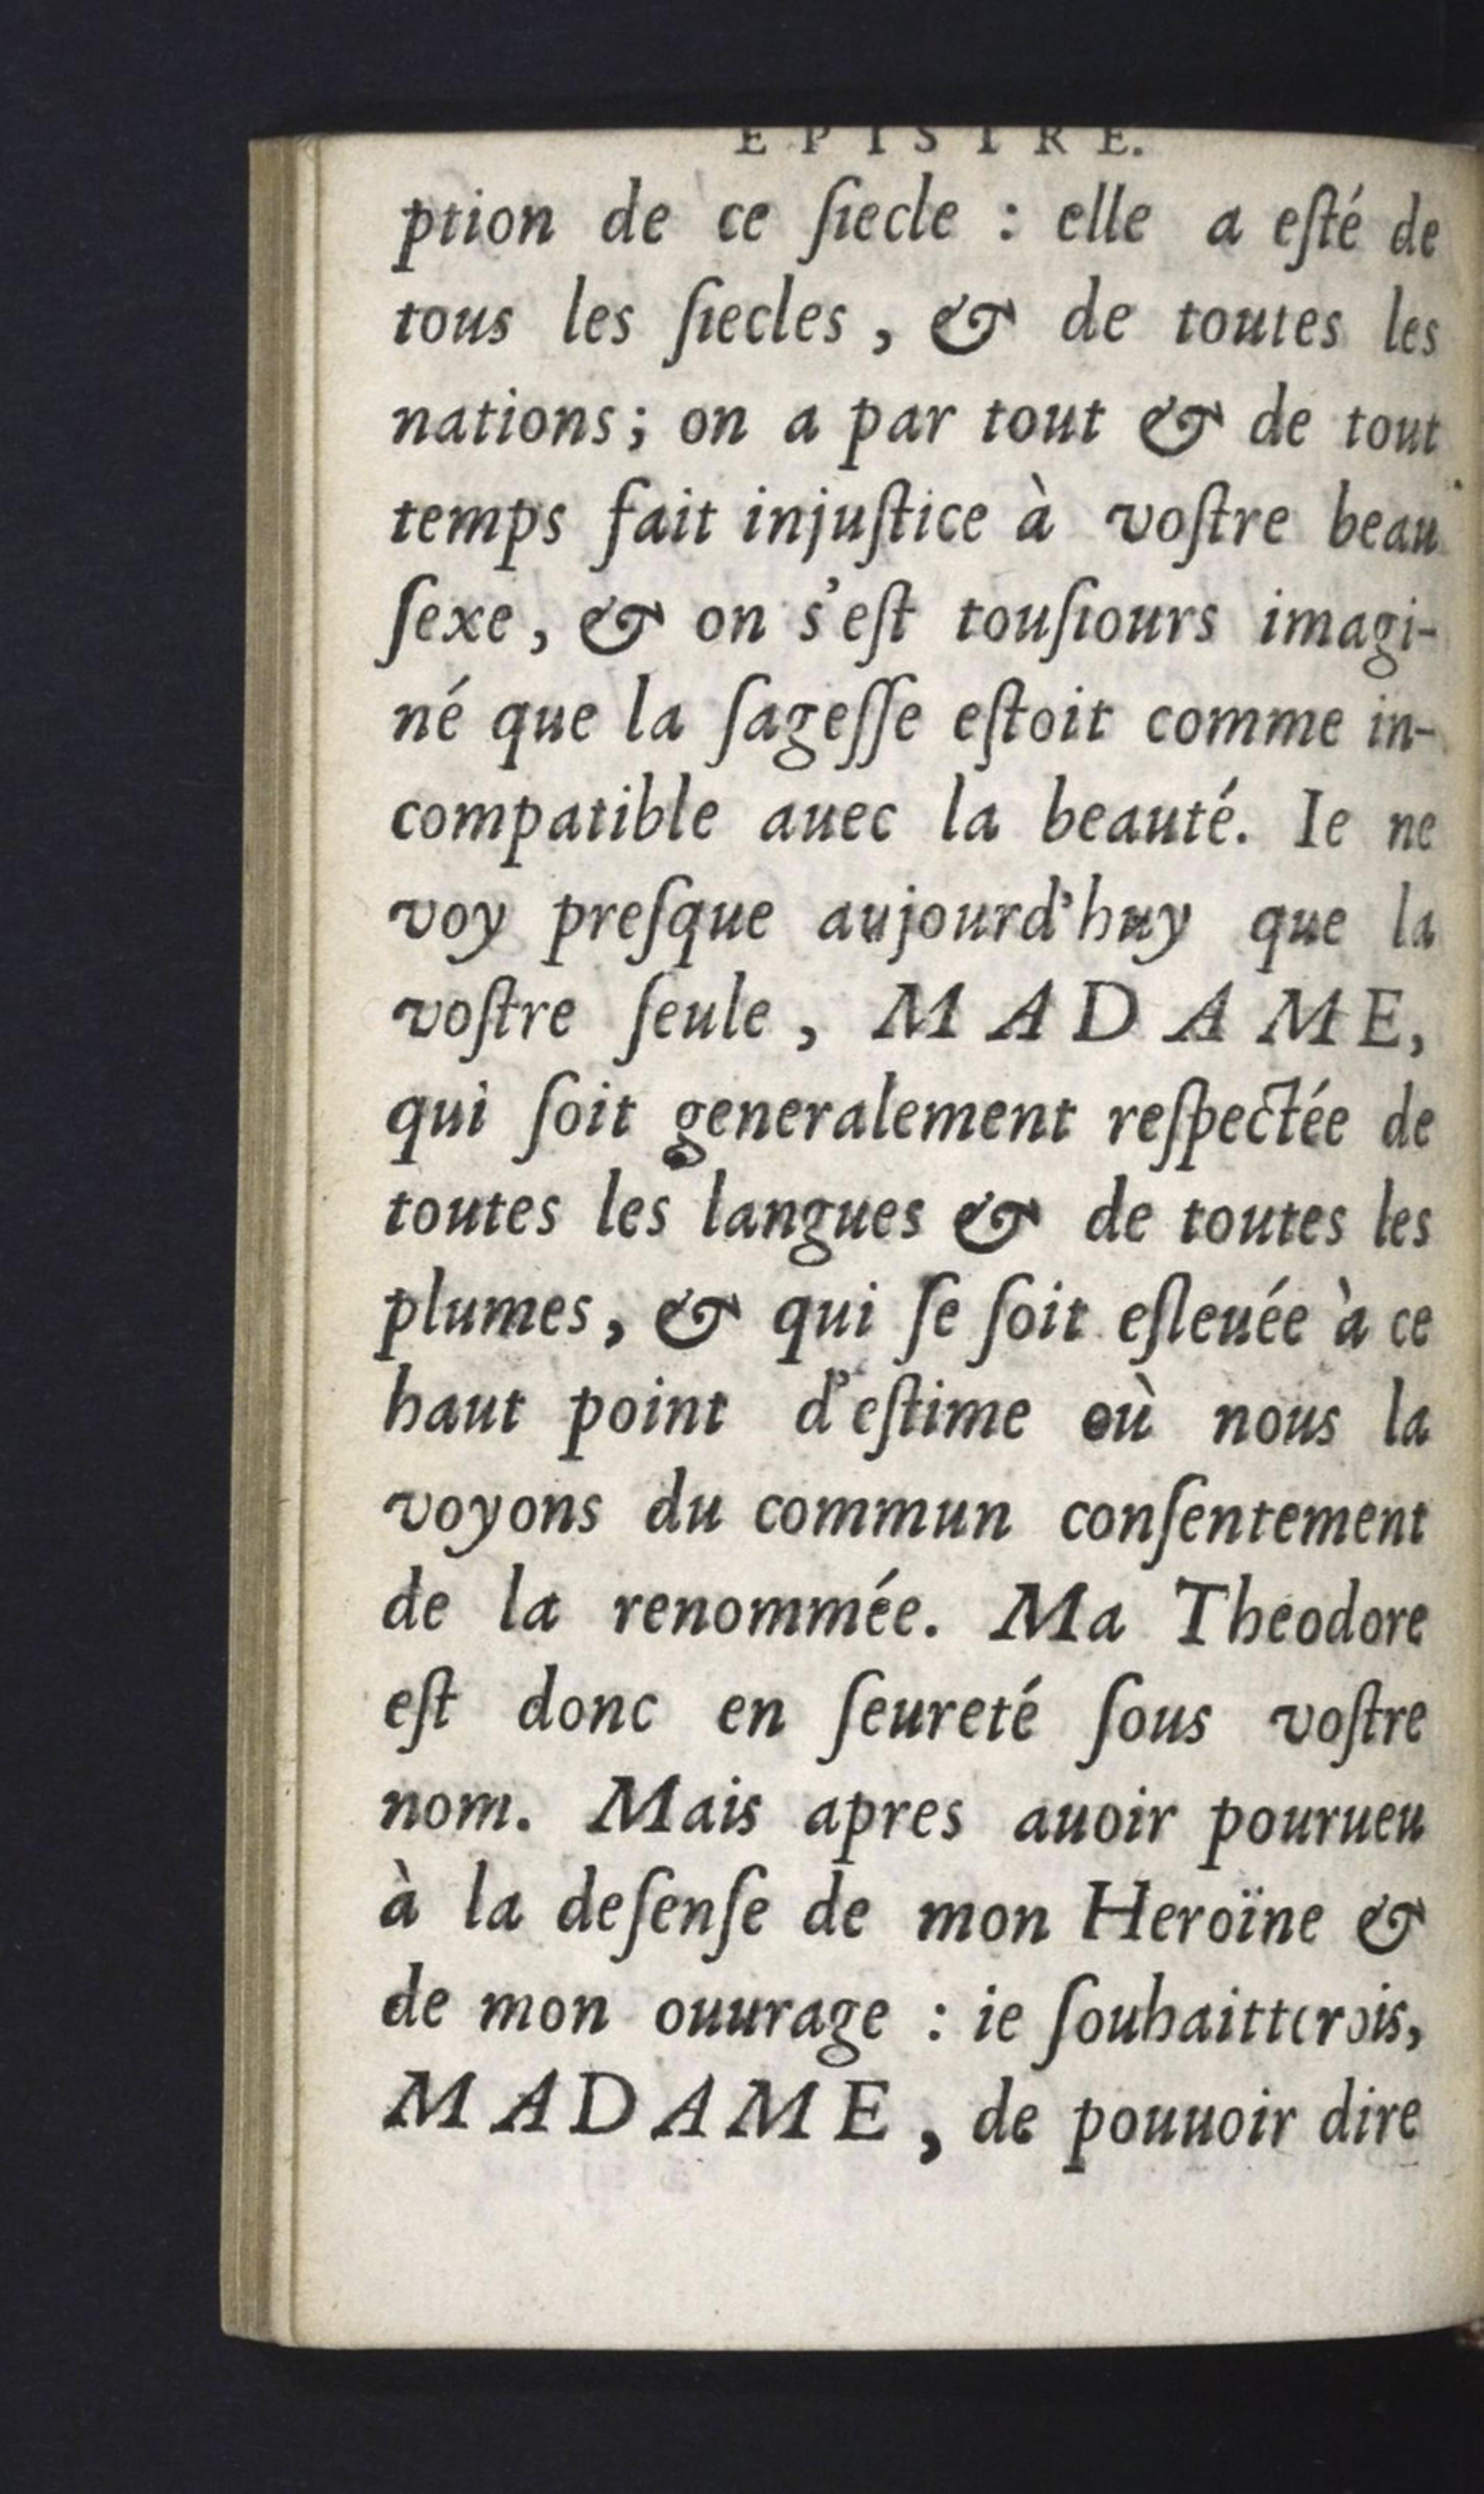 EPISTRE.
ption de ce ſiecle : elle a eſté de
tous les ſiecles , & de toutes les
nations ; on a par tout & de tout
temps fait injuſtice à voſtre beau
ſexe , & on s'eſt touſiours imagi-
né que la ſageſſe eſtoit comme in-
compatible auec la beauté. Ie ne
voy preſque aujourd'huy que la
voſtre ſeule , MADAME,
qui ſoit generalement reſpectée de
toutes les langues & de toutes les
plumes , & qui ſe ſoit eſleuée à ce
haut point d'eſtime où nous la
voyons du commun conſentement
de la renommée. Ma Theodore
eſt donc en ſeureté ſous voſtre
nom. Mais apres auoir pourueu
à la deſenſe de mon Heroïne &
de mon ouurage : ie ſouhaitterois,
MADAME , de pouuoir dire